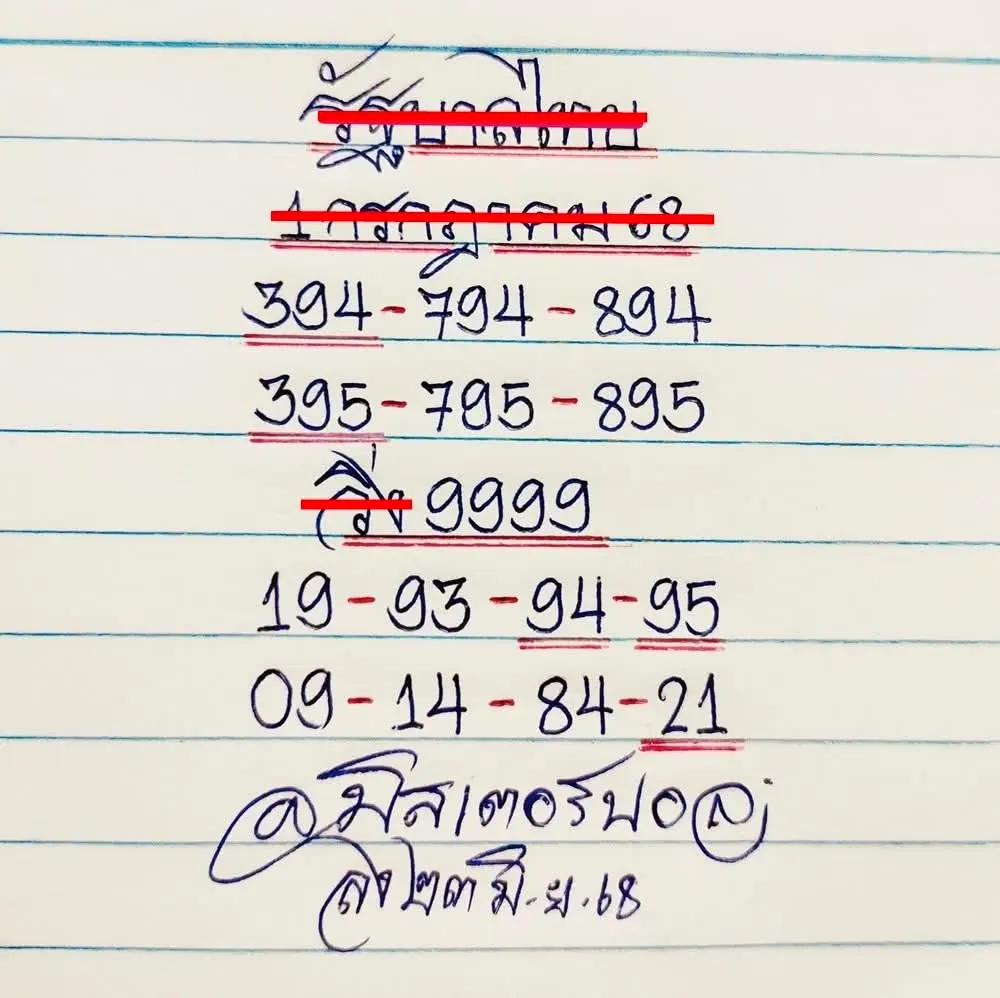 รัฐบาลไทย
1 กรกฎาคม 68
394 - 794 - 894
395 - 795 - 895
วิ่ง 9999
19 - 93 - 94 - 95
09 - 14 - 84 - 21
@มิสเตอร์ปอล;
ลง ๒๓ มิ.ย.68